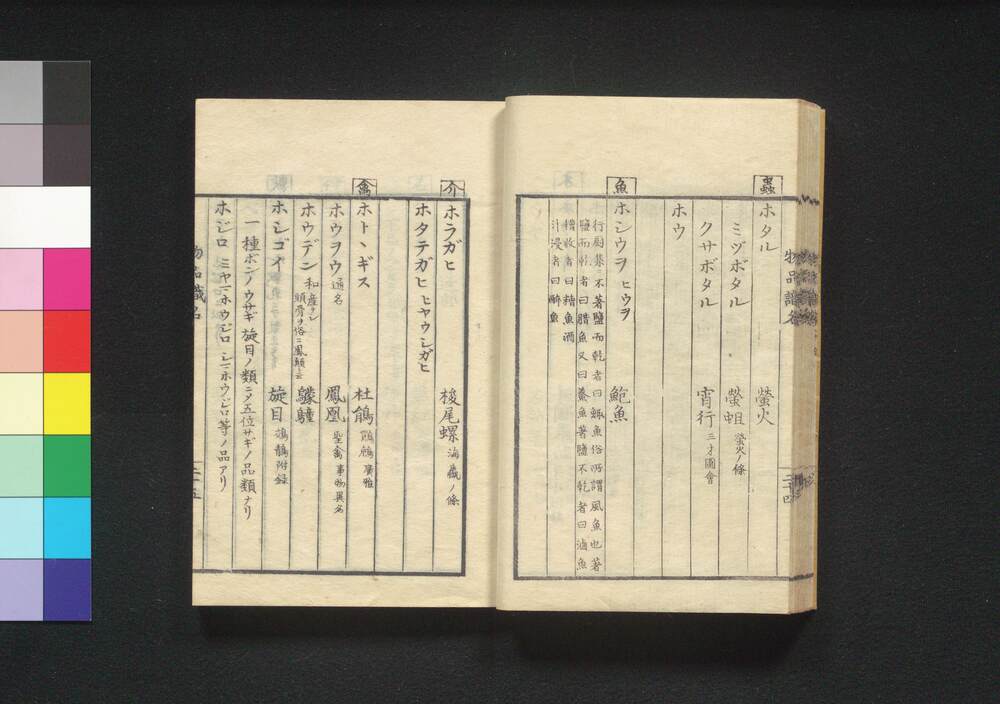 蟲
ホタル 螢火
ミヅボタル 螢蛆 螢火ノ條
クサボタル 宵行 三才圖會
ホウ
魚
ホシウヲ ヒウヲ 鮑魚
行厨集ニ不著鹽而乾者曰 魚俗所謂風魚也著
鹽而乾者曰腊魚又曰 魚著鹽不乾者曰滷魚
糟收者曰糟魚酒
汁浸者曰醉魚
物品識名
二十四
介
ホラガヒ 梭尾螺 海蠃ノ條
ホタテガヒ ヒヤウシガヒ
禽
ホトヽギス 杜鵑 廣雅
ホウヲウ 通名 鳳凰 聖禽 事物異名
ホウデン 和産ナシ
頭骨ヲ俗ニ鳳顛ト云
ホシゴイ 旋目 鵁鶄附録
一種ボンノウサギ旋目ノ類ニメ五位サギノ品類ナリ
ホジロ ミヤマホウジロ シマホウジロ等ノ品アリ
物品識名
二十五